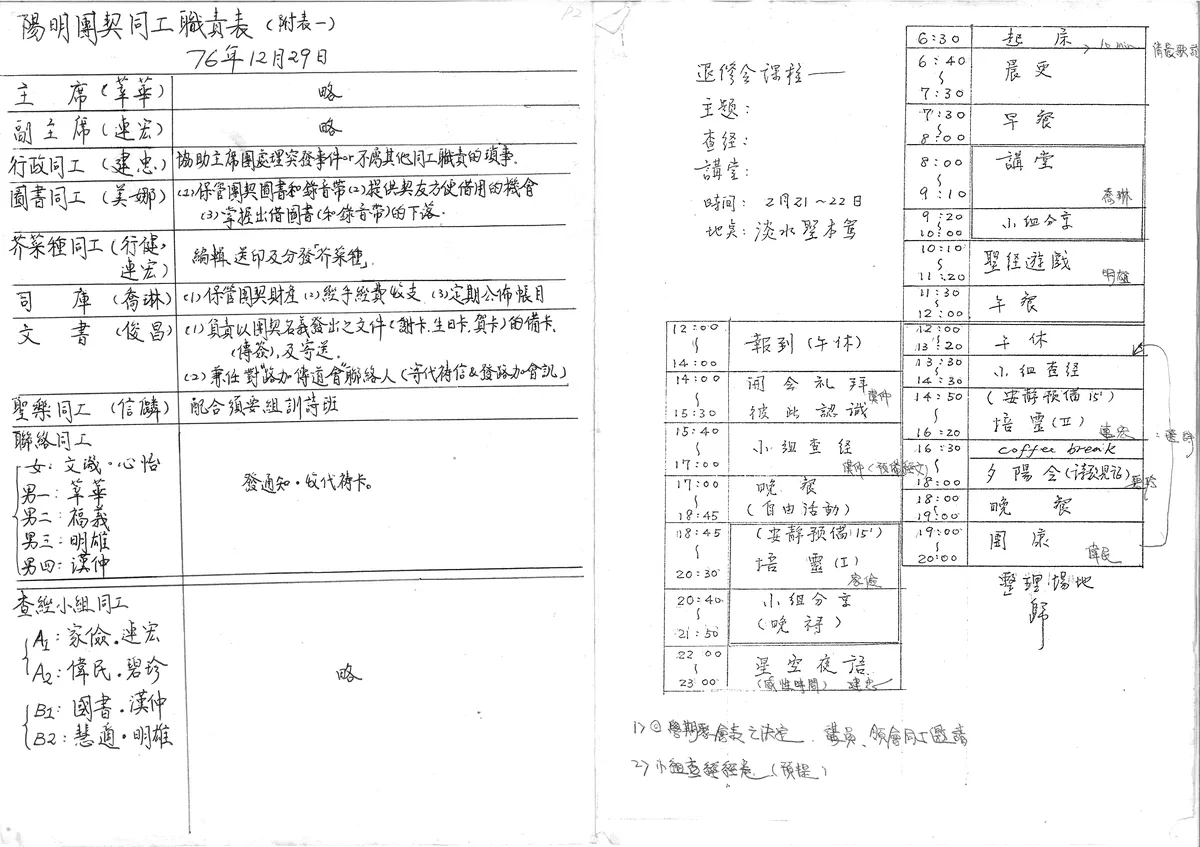 陽明團契同工職責表(附表一)
76年12月29日
主 席(莘華) 略
副主席(連宏) 略
行政同工(建忠) 協助主席團處理突發事件or不屬其他同工職責的瑣事.
圖書同工(美娜) (1)保管團契圖書和錄音帶(2)提供契友方便借用的機會
(3)掌握出借圖書(和錄音帶)的下落.
芥菜種同工(行健, 連宏) 編輯、送印及分發「芥菜種」
司 庫(喬琳) (1)保管團契財產(2)經手經費收支(3)定期公佈帳目
文 書(俊昌) (1)負責以團契名義發出之文件(謝卡、生日卡、賀卡)的備卡,
(傳簽),及寄送.
(2)兼任對"路加傳道會"聯絡人(寄代禱信&發路加會訊)
聖樂同工(信麟) 配合須要組訓詩班
聯絡同工
女:文識·心怡
男一:莘華
男二:福義
男三:明雄
男四:漢仲
發通知·收代禱卡。
查經小組同工
A1:家儉·連宏
A2:偉民·碧珍
B1:國書·漢仲
B2:慧適·明雄
略
P2
退修會課程——
主題:
查經:
講堂:
時間: 2月21~22日
地點:淡水聖本篤
12:00~14:00 報到(午休)
14:00~15:30 開會礼拜 彼此認識 漢仲
15:40~17:00 小組查經 漢仲
17:00~18:45 晚餐(自由活動)
18:45~20:30 (安靜預備15') 培靈(I) 家儉
20:40~21:50 小組分享(晚禱)
22:00~23:00 星空夜語(感性時間) 建忠
6:30 起床 10 min
6:40~7:30 晨更
7:30~8:00 早餐
8:00~9:10 講堂 喬琳
9:20~10:00 小組分享
10:10~11:20 聖經遊戲 明雄
11:30~12:00 午餐
12:00~13:20 午休
13:30~14:30 小組查經
14:50~16:20 (安靜預備15') 培靈(II) 連宏
16:30 coffee break
~18:00 夕陽會
18:00~19:00 晚餐
19:00~20:00 團康 偉民
整理場地
歸
1)◎學期聚會表之決定 講員、領會同工邀請
2)小組查經經卷(預提)